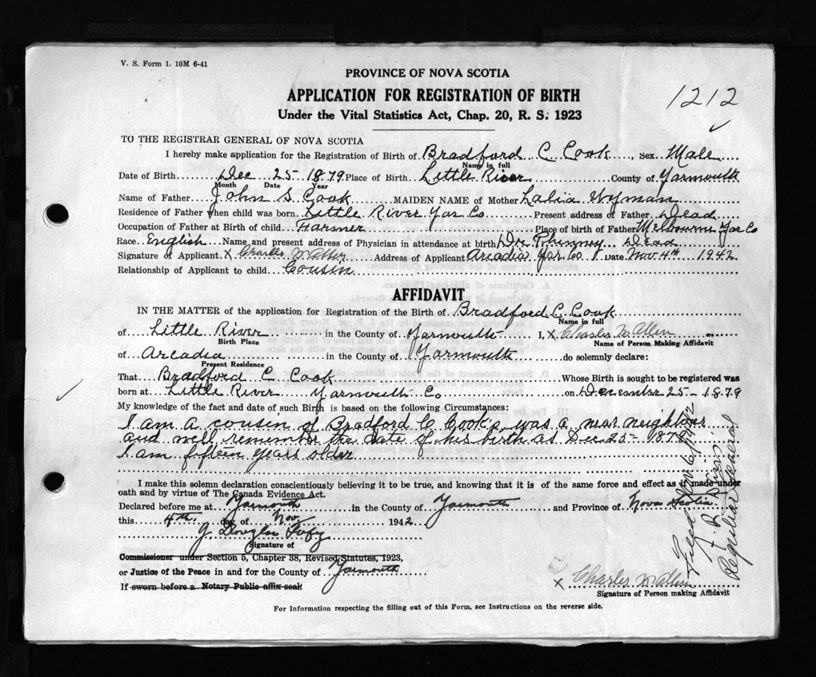 V. S. Form 1. 10M 6-41
PROVINCE OF NOVA SCOTIA
1212
APPLICATION FOR REGISTRATION OF BIRTH
Under the Vital Statistics Act, Chap. 20, R. S. 1923
TO THE REGISTRAR GENERAL OF NOVA SCOTIA
I hereby make application for the Registration of Birth of Bradford C. Cook, Sex Male
Name in full
Date of Birth Dec 25 - 1879 Place of Birth Little River County of Yarmouth
Month Date Year
Name of Father John S Cook MAIDEN NAME of Mother Lalia Wyman
Residence of Father when child was born Little River Yar Co Present address of Father Dead
Occupation of Father at Birth of child Farmer Place of Birth of Father Melbourne Yar Co
Race English Name and present address of Physician in attendance at birth Dr. Phinney Dead
Signature of Applicant X Charles W Allen Address of Applicant Arcadia Yar Co. Date Nov 4th 1942
Relationship of Applicant to child Cousin
AFFIDAVIT
IN THE MATTER of the application for Registration of the Birth of Bradford C. Cook
Name in full
of Little River in the County of Yarmouth I, X Charles W. Allen
Birth Place Name of Person Making Affidavit
of Arcadia in the County of Yarmouth do solemnly declare:
Present Residence
That Bradford C. Cook Whose Birth is sought to be registered was
born at Little River Yarmouth Co on December 25 - 1879
My knowledge of the fact and date of such Birth is based on the following Circumstances:
I am a cousin of Bradford C Cook, was a near neighbour
and well remember the date of his birth as Dec. 25 - 1879
I am fifteen years older
I make this solemn declaration conscientiously believing it to be true, and knowing that it is of the same force and effect as if made under
oath and by virtue of The Canada Evidence Act.
Declared before me at Yarmouth in the County of Yarmouth and Province of Nova Scotia
this 4th day of Nov 1942
J Douglas
Signature of
Commissioner under Section 5, Chapter 38, Revised Statutes, 1923,
or Justice of the Peace in and for the County of Yarmouth
If sworn before a Notary Public affix seal
X Charles W Allen
Signature of Person making Affidavit
For Information respecting the filling out of this Form, see Instructions on the reverse side.
Filed Nov 6/1942
Registrar General